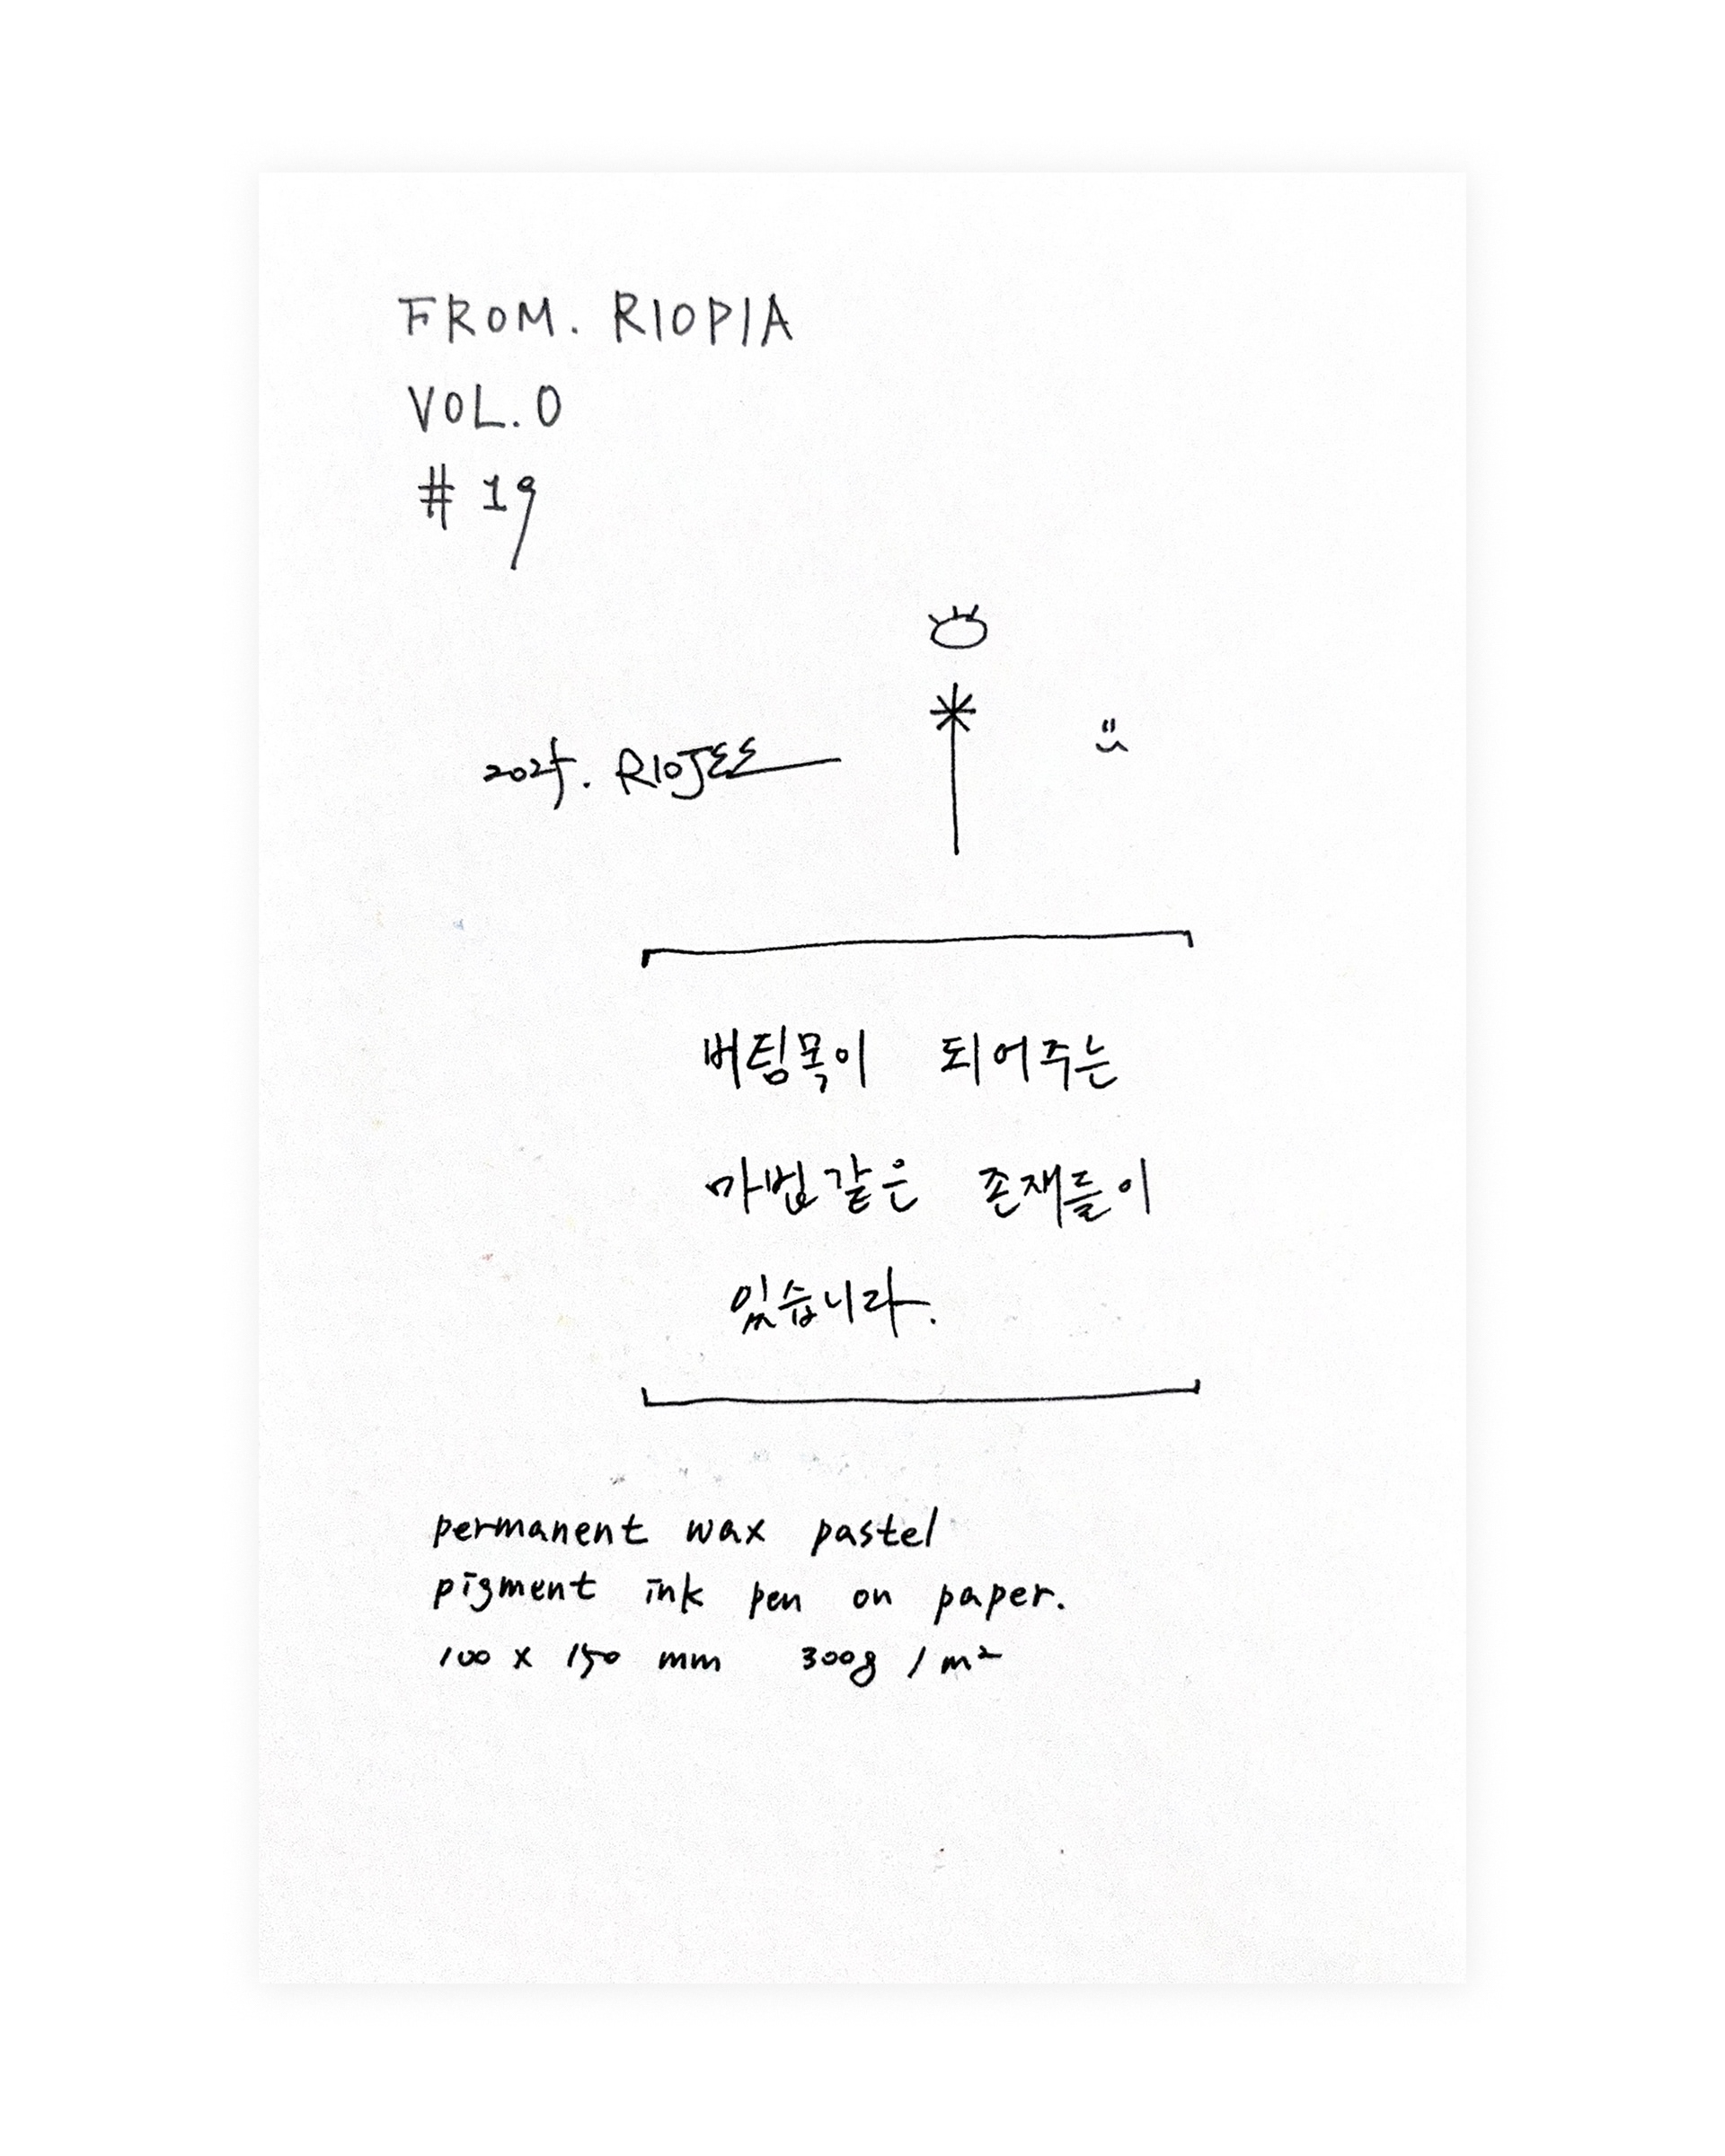 FROM. RIOPIA
VOL.0
# 19
2025. RIOJEE
버팀목이 되어주는
마법같은 존재들이
있습니다.
permanent wax pastel
pigment ink pen on paper.
100 x 150 mm 300g / m²